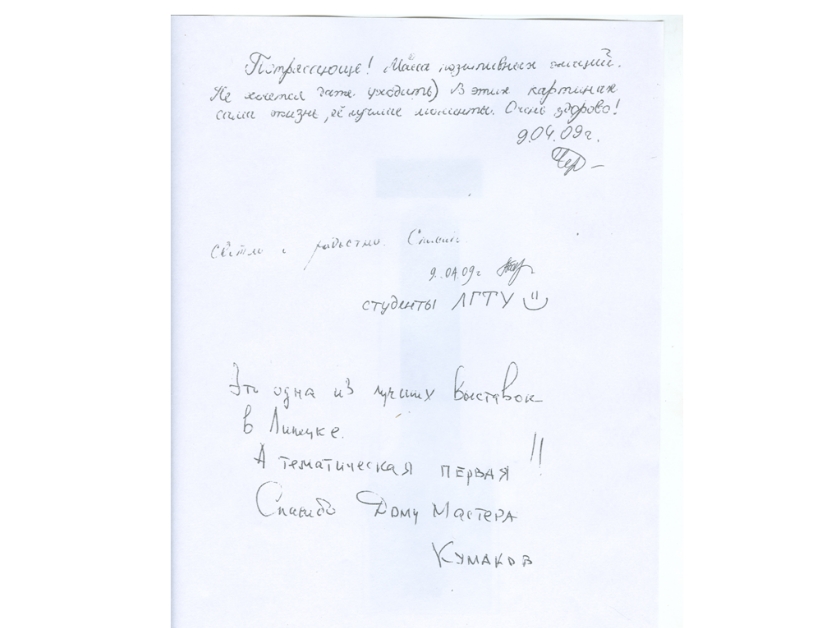 Потрясающе! Масса позитивных эмоций.
Не хочется даже уходить) В этих картинах
сама жизнь, её лучшие моменты. Очень здорово!
9.04.09г.
Светло и радостно. Спасибо
9.04.09г
студенты ЛГТУ
Это одна из лучших выставок
в Липецке.
А тематическая ПЕРВАЯ!!
Спасибо Дому Мастера
Кумаков